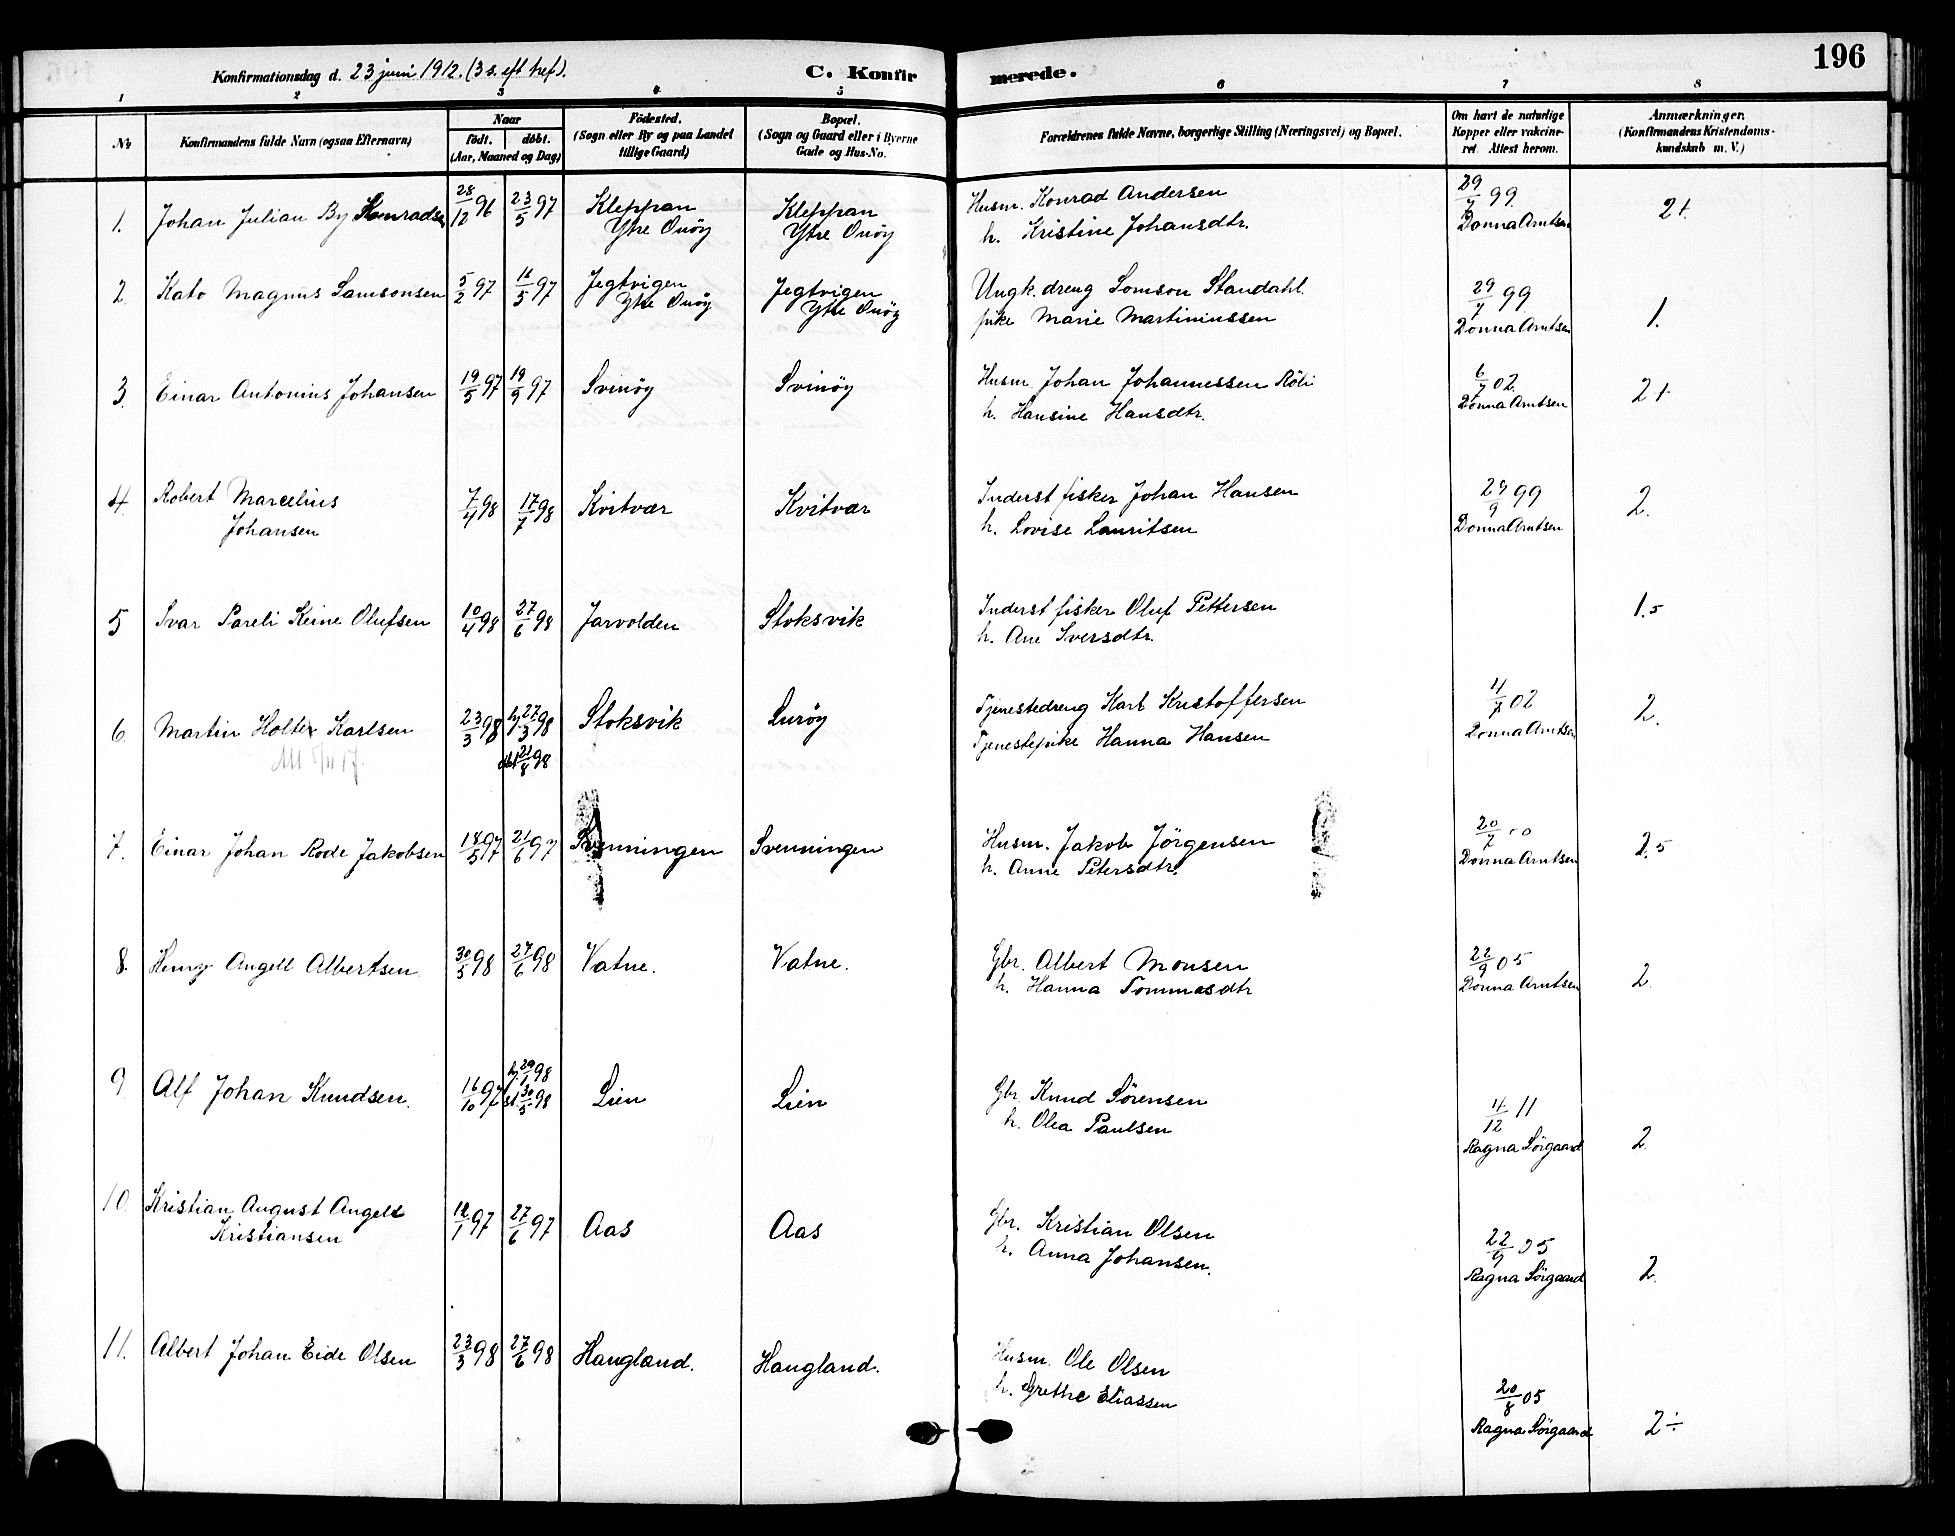 196
Konfirmationsdag d. 23 juni 1912. (3 s. eft tref).
C. Konfirmerede.
1 2 3 4 5 6 7 8
No
Konfirmandens fulde Navn (ogsaa Efternavn)
Naar
født. døbt.
(Aar, Maaned og Dag)
Fødested.
(Sogn eller By og paa Landet
tillige Gaard)
Bopæl.
(Sogn og Gaard eller i Byerne
Gade og Hus-No.
Forældrenes fulde Navne, borgerlige Stilling (Næringsvei) og Bopæl.
Om havt de naturlige
Kopper eller vakcine-
ret. Attest herom.
Anmærkninger.
(Konfirmandens Kristendoms-
kundskab m. V.)
1. Johan Julian By Konradsen 28/12 96 23/5 97 Kleppan
Ytre Onöy
Kleppan
Ytre Onöy
Husm. Konrad Andersen
h. Kristine Johansdtr.
29/7 99.
Donna Arntsen
2+.
2. Kato Magnus Samsonsen 5/2 97 16/5 97 Jegtvigen
Ytre Onöy
Jegtvigen
Ytre Onöy
Ungk. dreng Somson Standahl.
pike Marie Martiniussen
29/7 99
Donna Arntsen
1.
3. Einar Antonius Johansen 19/5 97 19/9 97 Svinöy Svinöy
Husm. Johan Johannessen Röli
h. Hansine Hansdtr.
6/7 02.
Donna Arntsen
2+
4. Robert Marcelius
Johansen
7/4 98 17/7 98 Kvitvær Kvitvær
Inderst fisker Johan Hansen
h. Lovise Lauritsen
29/9 99
Donna Arntsen
2.
5 Ivar Pareli Keine Olufsen 10/4 98 27/6 98 Jarvolden Stoksvik
Inderst fisker Oluf Pettersen
h. Ane Iversdtr.
1.5
6. Martin Holter Karlsen 23/3 98 hj 27/3 98
21/8 98
Stoksvik Luröy
Tjenestedreng Karl Kristoffersen
Tjenestepike Hanna Hansen
4/7 02
Donna Arntsen
2.
7. Einar Johan Rode Jakobsen 18/5 97 21/6 97 Svenningen Svenningen
Husm. Jakob Jörgensen
h. Anne Petersdtr.
20/7 00
Donna Arntsen
2.5
8. Henry Angell Albertsen 30/5 98 27/6 98 Vatne. Vatne.
Gbr. Albert Monsen
h. Hanna Tommasdtr
22/9 05
Donna Arntsen
2.
9 Alf Johan Knudsen. 16/10 97 hj. 29/1 98
st 30/5 98
Lien Lien
Gbr. Knud Sörensen
h. Olea Paulsen
4/12 11
Ragna Sörgaard
2.
10. Kristian August Angell
Kristiansen
12/1 97 27/6 97 Aas Aas
Gbr. Kristian Olsen
h. Anna Johansen.
22/9 05
Ragna Sörgaard
2.
11. Albert Johan Eide Olsen 23/3 98 27/6 98 Haugland. Haugland.
Husm. Ole Olsen
h. Grethe Eliassen
20/8 05
Ragna Sörgaard
2÷